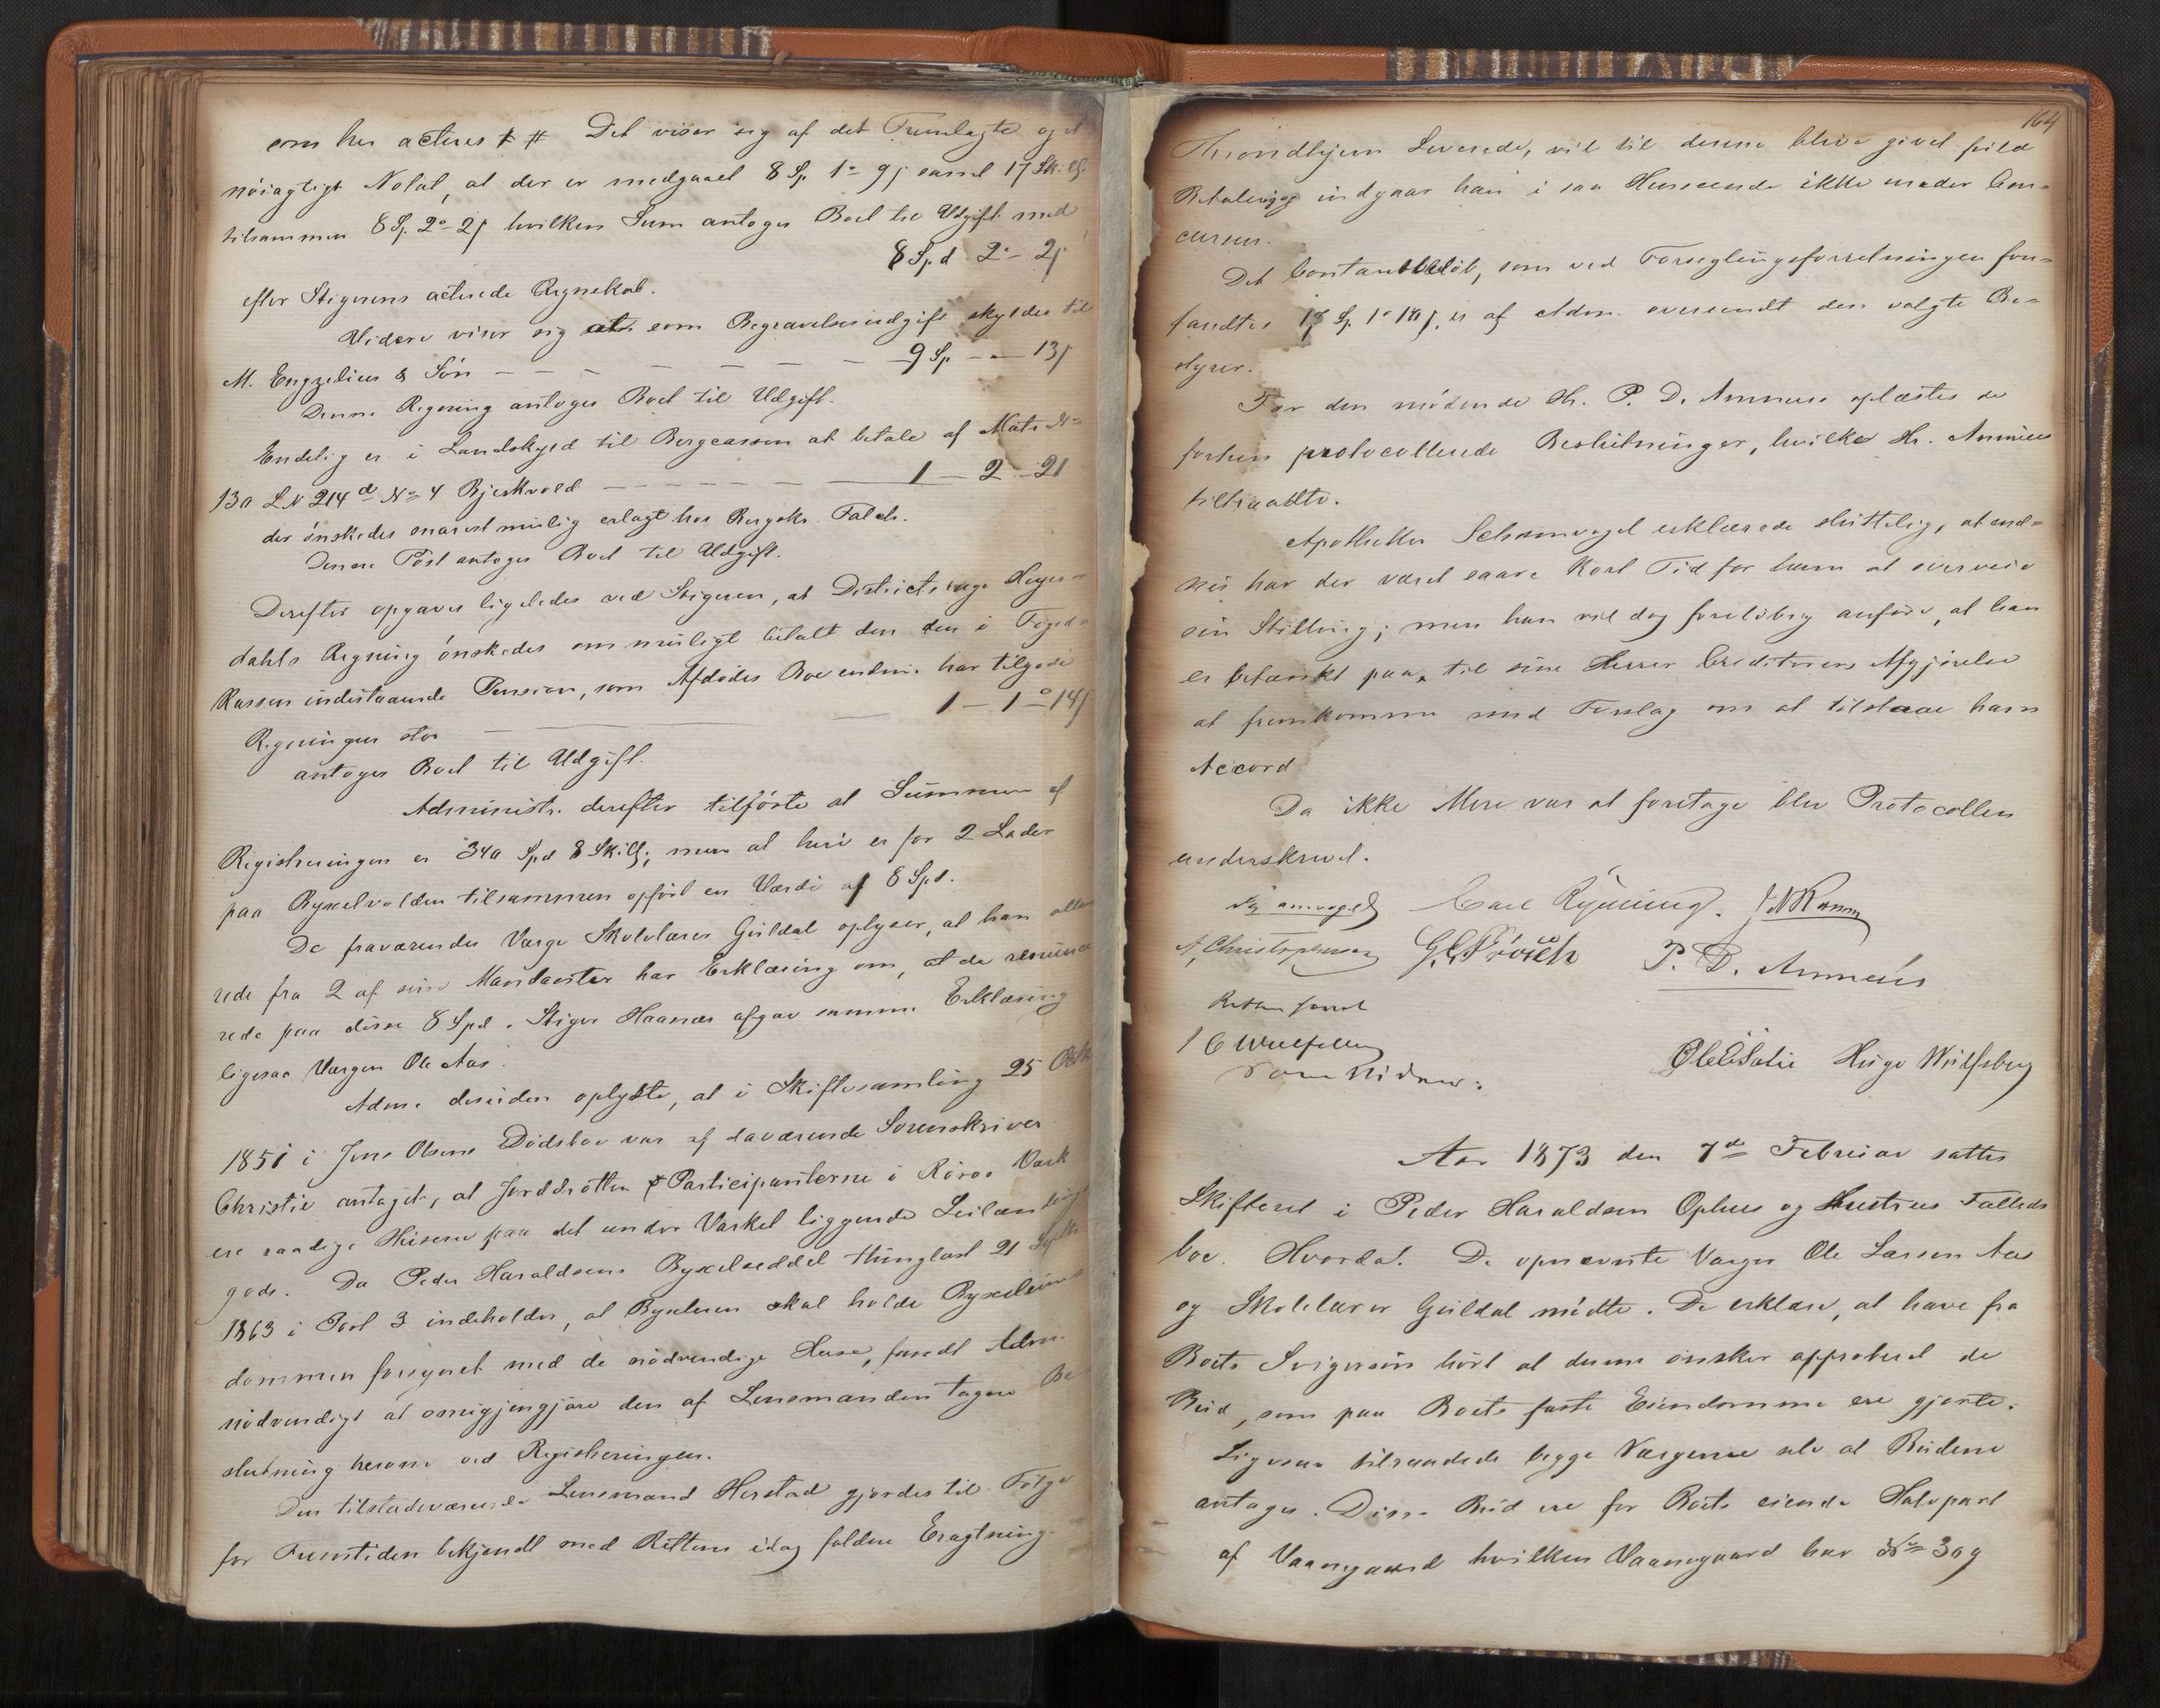 som her acteres # Det viser sig af det Fremlagte og et
nöiagtigt Notat, at der er medgaaet 8 Sp 1 - 9 samt 17 Sk.
tilsammen 8 Sp. 2 - 2 hvilken Sum antoges Boet til Udgift med
8 Spd 2 - 2
efter Stigerens acterede Regnskab.
Videre viser sig at som Begravelsesudgift skyldes til
M. Engzelius & Sön - - - - - - 9 Sp - - 13
Denne Regning antoges Boet til Udgift.
Endelig er i Landskyld til Bergcassen at betale af Matr. N
13a L N 214 d No 4 Bjerkvold - - - - - 1 - 2 - 21
der önskedes snarest mulig erlagt hos Bergskr. Falch.
Denne Post antoges Boet til Udgift.
Derefter opgaves ligeledes ved Stigeren, at Districtslæge Heyer-
dahls Regning önskedes om muligt betalt den den i Foged-
kassen indestaaende Pension, som Afdödes Bo endnu har tilgode
Regningen stor - - - 1 - 1 - 14
antoges Boet til Udgift.
Administr. derefter tilförte at Summen af
Registreringen er 340 Spd 8 Skill; men at heri er for 2 Lader
paa Byxelvolden tilsammen opfört en Værdi af 8 Spd.
De fraværendes Værge Skolelærer Guldal oplyser, at han alle
rede fra 2 af sine Mandanter har Erklæring om, at de renunce
rede paa disse 8 Spd. Stiger Haanæs afgav samme Erklæring
ligesaa Værgen Ole Aas.
Adm. desuden oplyste, at i Skiftesamling 25
1851 i Jens Olsens Dödsbo var af daværende Sorenskriver
Christie antaget, at Jorddrotten Participanterne i Röros Værk
ere raadige Husene paa det under Værket liggende Leilændings
gods. Da Peder Haraldsens Byxelseddel thinglæst 21 Septbr
1863 i Post 3 indeholder, at Byxleren skal holde Byxeleien
dommen forsynet med de nödvendige Huse, fandt Adm.
nödvendigt at omgjöre den af Lensmanden tagne Be
slutning herom ved Registreringen.
Den tilstedeværende Lensmand Herstad gjordes til Fölge
for Fremtiden bekjendt med Rettens idag faldne Eragtning.
164
Throndhjem Leverede, vil til denne blive givet fuld
Betaling og indgaar han i saa Henseende ikke under Con-
cursen.
Det Contantbelöb, som ved Forseglingsforretningen fore-
fandtes 17 Sp. 1 - 18, er af Adm. oversendt den valgte Be-
styrer.
For den mödende Hr. P. D. Annæus oplæstes de
forhen protocollerede Beslutninger, hvilke Hr. Annæus
tiltraadte.
Apotheker Schamvogel erklærede sluttelig, at end-
nu har der været saare kort Tid for ham at overveie
sin Stilling; men han vil dog foreløbig anføre, at han
er betænkt paa, til sine Herrer Creditorers Afgjörelse
at fremkomme med Forslag om at tilstaae ham
Accord
Da ikke Mere var at foretage blev Protocollen
underskrevet.
Schamvogel Carl Rynning. J N Ramm
A, Christophersen P. D. Annæus
Retten hævet
Som Vidner:
Hugo Wulfsberg
Aar 1873 den 7de Februar sattes
Skifteret i Peder Haraldsen Ophus og Hustrues Fælleds
boe. Hvorda! De opnævnte Værger Ole Larsen Aas
og Skolelærer Guldal mödte. De erklære, at have fra
Boets Svigersön hört at denne önsker approberet de
Bud, som paa Boets faste Eiendomme ere gjorte.
Ligesaa tilraadede begge Værgerne selv at Budene
antages. Disse Bud ere for Boets eiende Halvpart
af Vaaningaard hvilken Vaanegaard har No 309